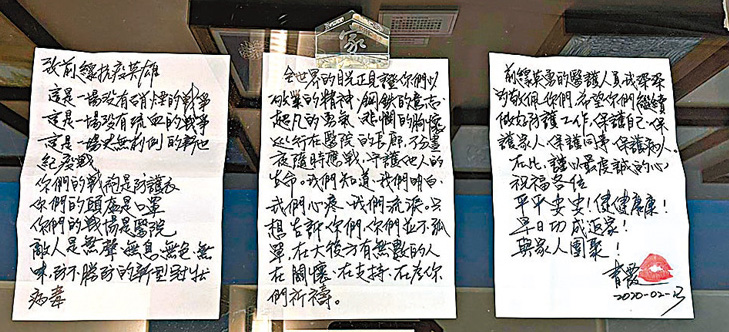 致前線抗疫英雄
這是一場沒有硝煙的戰爭
這是一場沒有流血的戰爭
這是一場史無前例的新世
紀疫戰
你們的戰袍是防護衣
你們的頭盔是口罩
你們的戰場是醫院
敵人是無聲、無息、無色、無
味、防不勝防的新型冠狀
病毒
家
全世界的目光正見證你們以
敬業的精神、鋼鐵的意志、
超凡的勇氣、悲憫的胸懷
逆行在醫院的長廊，不分晝
夜隨時應戰，守護他人的
生命。我們知道、我們明白、
我們心疼、我們流淚。只
想告訴你們，你們並不孤
單，在大後方有無數的人
在關懷、在支持、在為你
們祈禱。
前線英勇的醫護人員，我深深
的敬佩你們，希望你們繼續
做好防護工作，保護自己、保
護家人、保護同事、保護病人。
在此，謹以最虔誠的心
祝福各位
平平安安！健健康康！
早日功成返家！
與家人團聚！
青霞
2020-02-13